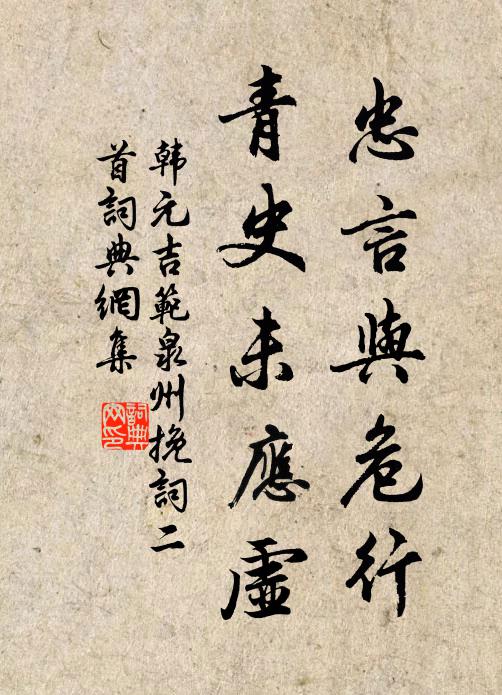 忠言與危行
青史未應虛
韩元吉範泉州挽詞二
首詞典網集
詞典
网印